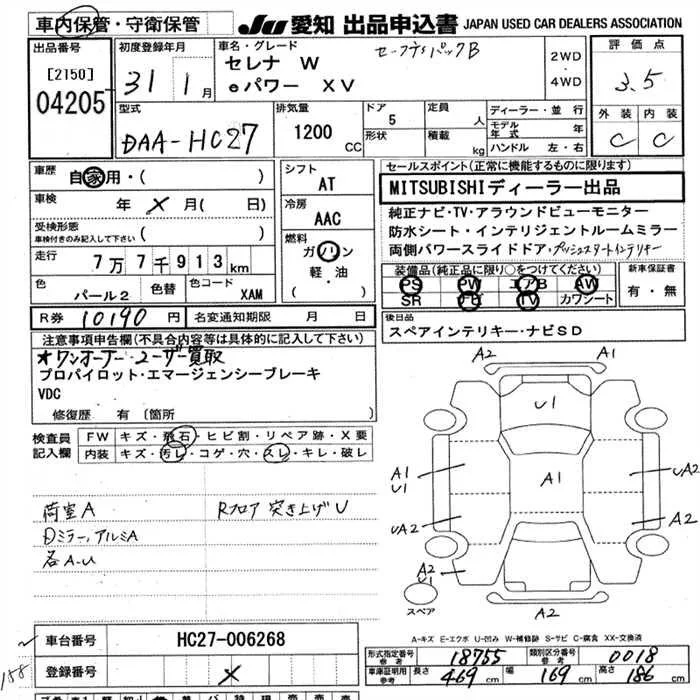 車内保管・守衛保管
JU 愛知 出品申込書 JAPAN USED CAR DEALERS ASSOCIATION
出品番号
[2150]
04205
初度登録年月
31 1月
車名・グレード
セレナ W
eパワー XV
セーフティパックB
2WD
4WD
評価点
3.5
外装 内装
C C
型式
DAA-HC27
排気量
1200 CC
ドア 5
形状
定員 人
積載 kg
ディーラー・並行
モデル年式 年
ハンドル 左・右
車歴
自家用・( )
車検
年 X 月( 日)
受検形態
車検付きのみ記入して下さい
( )
走行
7万7千913km
色 パール2
色替
色コード XAM
シフト
AT
冷房
AAC
燃料
ガソリン
軽・油
( )
セールスポイント(正常に機能するものに限ります)
MITSUBISHIディーラー出品
純正ナビ・TV・アラウンドビューモニター
防水シート・インテリジェントルームミラー
両側パワースライドドア・プッシュスタートインテリキー
装備品(純正品に限り○をつけてください)
PS PW エアB AW
SR ナビ TV カワシート
新車保証書
有・無
R券 10190 円
名変通知期限 月 日
後日品
スペアインテリキー・ナビSD
注意事項申告欄(不具合内容等は具体的に記入して下さい)
★ワンオーナー・ユーザー買取
プロパイロット・エマージェンシーブレーキ
VDC
修復歴 有 (箇所 )
検査員
記入欄
FW キズ・飛石・ヒビ割・リペア跡・X要
内装 キズ・汚レ・コゲ・穴・スレ・キレ・破レ
荷室A
Rフロア 突き上げU
Dミラー、アルミA
各A-U
A2 A1
U1
A1
U1
A1
UA2
UA2
A2
A2
U1
A2
A2
スペア
A-キズ E-エクボ U-凹み W-補修跡 S-サビ C-腐食 XX-交換済
車台番号 HC27-006268
登録番号 X
158
形式指定番号 参考 18755
類別区分番号 参考 0018
車庫証明用 参考 長さ 469 cm 幅 169 cm 高さ 186 cm